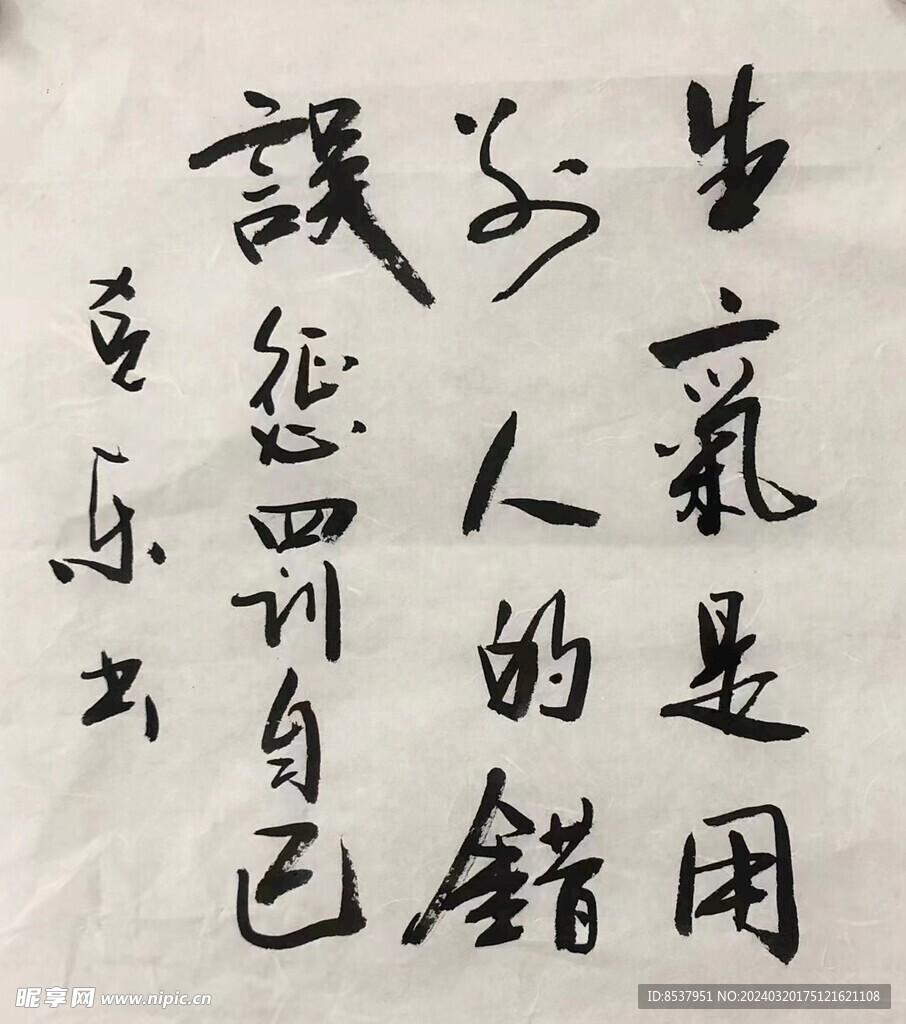 生氣是用
别人的錯
誤惩罚自己
喜乐书
昵享网 www.nipic.cn
ID:8537951 NO:20240320175121621108